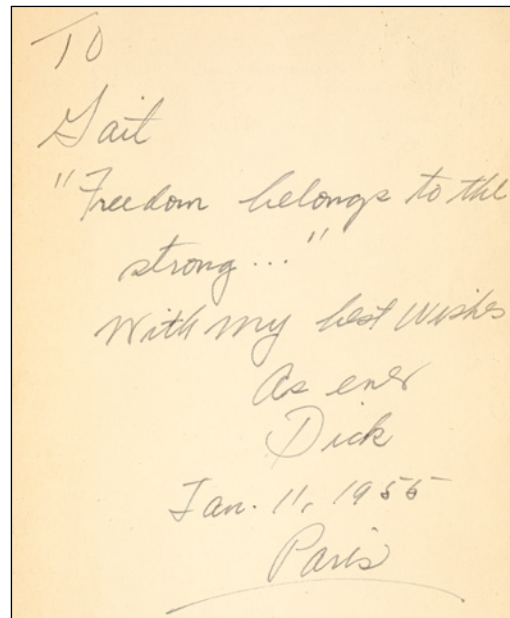 To
Gait
"Freedom belongs to the
strong..."
With my best wishes
As ever
Dick
Jan. 11, 1955
Paris